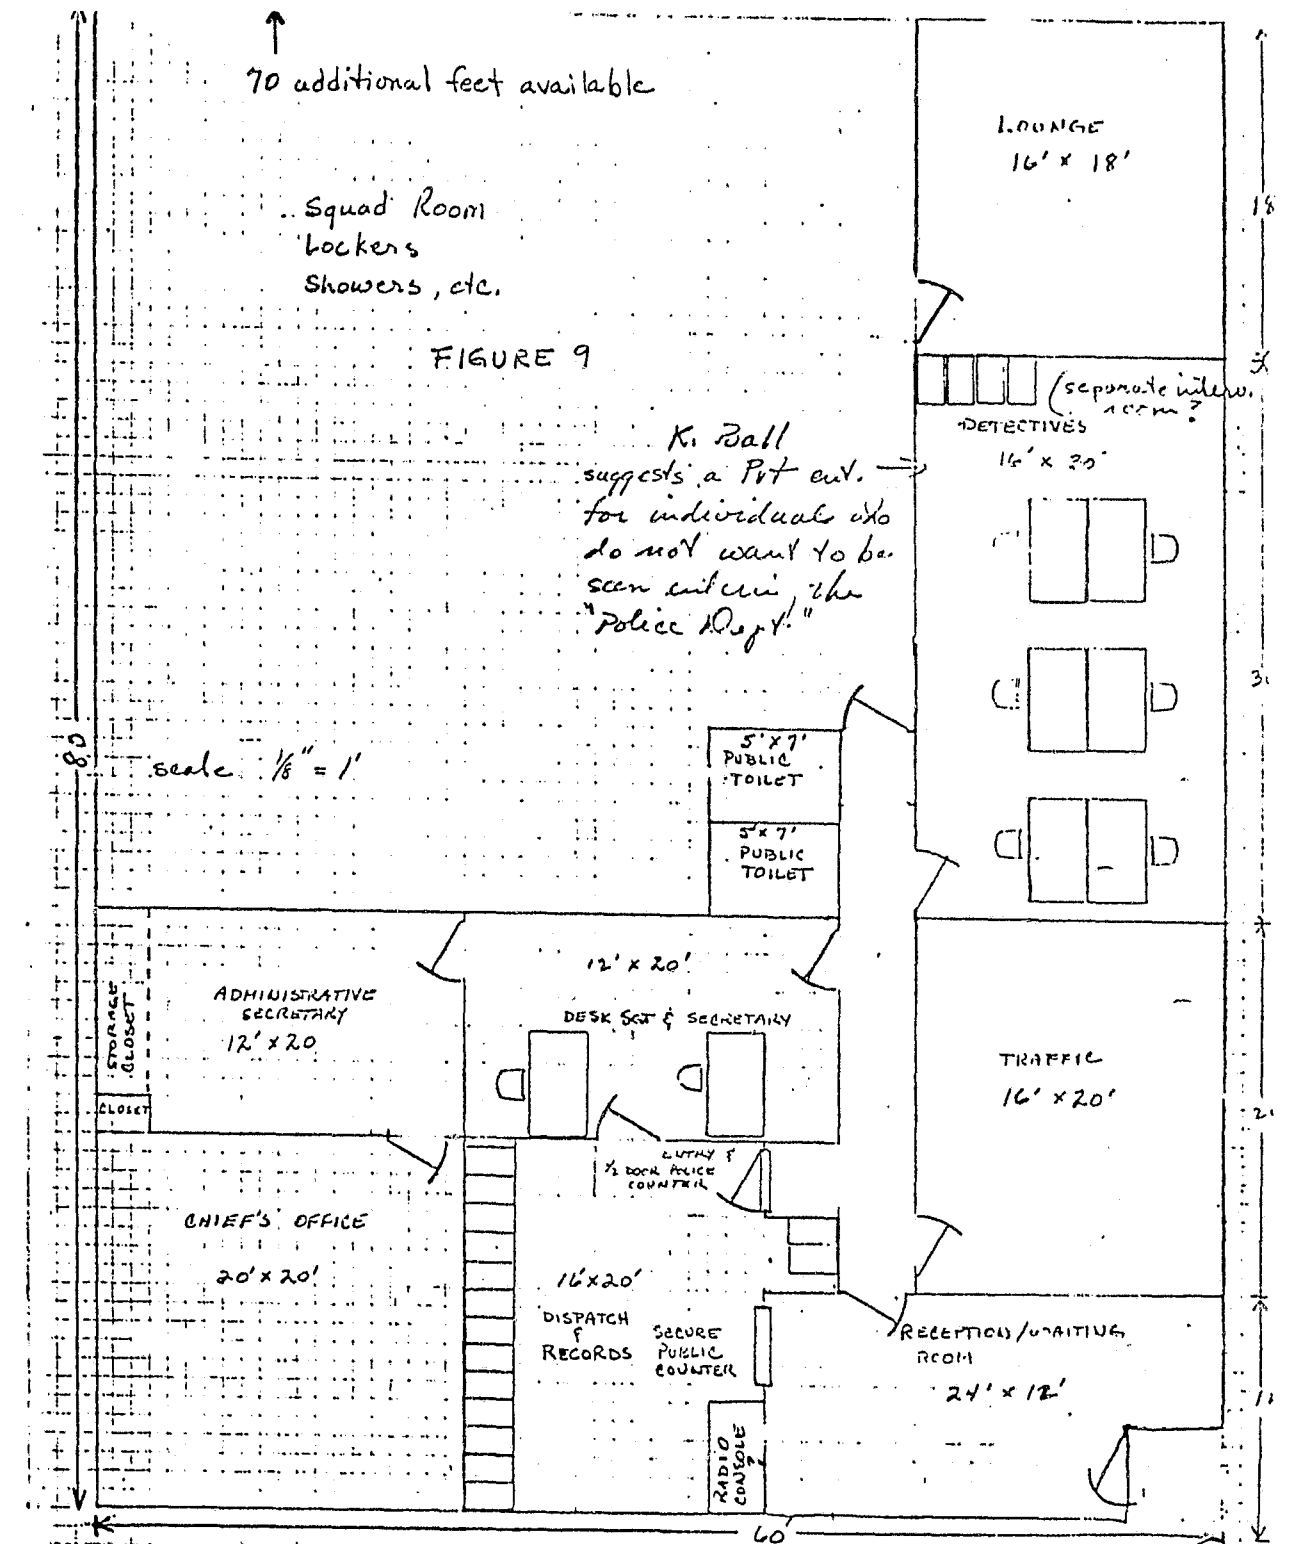 70 additional feet available
LOUNGE
16' x 18'
18
Squad Room
Lockers
Showers, etc.
FIGURE 9
(separate interv.
room?
DETECTIVES
16' x 20'
K. Ball
suggests a Pvt ent.
for individuals who
do not want to be
seen enterin, the
"Police Dept."
80
scale 1/8" = 1'
5' x 7'
PUBLIC
TOILET
5' x 7'
PUBLIC
TOILET
STORAGE
CLOSET
CLOSET
ADMINISTRATIVE
SECRETARY
12' x 20
12' x 20'
DESK SGT & SECRETARY
TRAFFIC
16' x 20'
ENTRY &
1/2 DOOR POLICE
COUNTER
CHIEF'S OFFICE
20' x 20'
16' x 20'
DISPATCH
&
RECORDS
SECURE
PUBLIC
COUNTER
RADIO
CONSOLE
?
RECEPTION/WAITING
ROOM
24' x 12'
60'